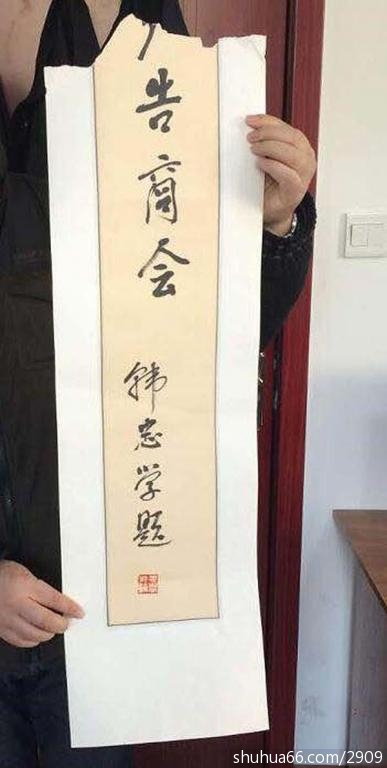 告商会
韩忠学题
shuhua66.com/2909